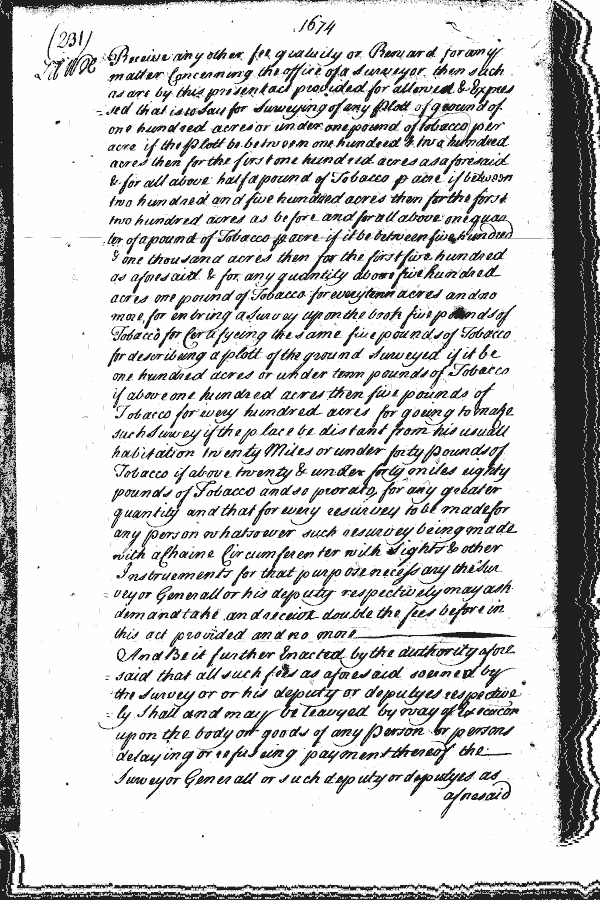 1674
(231)
Receive any other fee gratuity or Reward for any
matter Concerning the office of a Surveyor then such
as are by this present act provided for allowed & Expres
sed that is to say for Surveying of any Plott of ground of
one hundred acres or under one pound of tobacco per
acre if the Plott be between one hundred & two hundred
acres then for the first one hundred acres as aforesaid
& for all above half a pound of Tobacco p acre if between
two hundred and five hundred acres then for the first
two hundred acres as before and for all above one quar
ter of a pound of Tobacco p acre if it be between five hundred
& one thousand acres then for the first five hundred
as aforesaid & for any quantity above five hundred
acres one pound of Tobacco for every tenn acres and no
more for entring a Survey upon the book five pounds of
Tobacco for Certifycing the same five pounds of Tobacco
for describeing a plott of the ground Surveyed if it be
one hundred acres or under tenn pounds of Tobacco
if above one hundred acres then five pounds of
Tobacco for every hundred acres for goeing to make
such Survey if the place be distant from his usuall
habitation twenty Miles or under forty Pounds of
Tobacco if above twenty & under forty miles eighty
pounds of Tobacco and so prorato, for any greater
quantity and that for every resurvey to be made for
any Person whatsoever such resurvey being made
with a Chaine Circumferenter with Sights & other
Instruements for that purpose necessary the Sur
veyor Generall or his deputy respectively may ask
demand take and receive double the fees before in
this act provided and no more
And Be it further Enacted by the authority afore
said that all such fees as aforesaid soemed by
the Surveyor or his deputy or deputyes respective
ly Shall and may be leavyed by way of Execucon
upon the body or goods of any Person or persons
delaying or refuseing payment thereof the
Surveyor Generall or such deputy or deputyes as
aforesaid